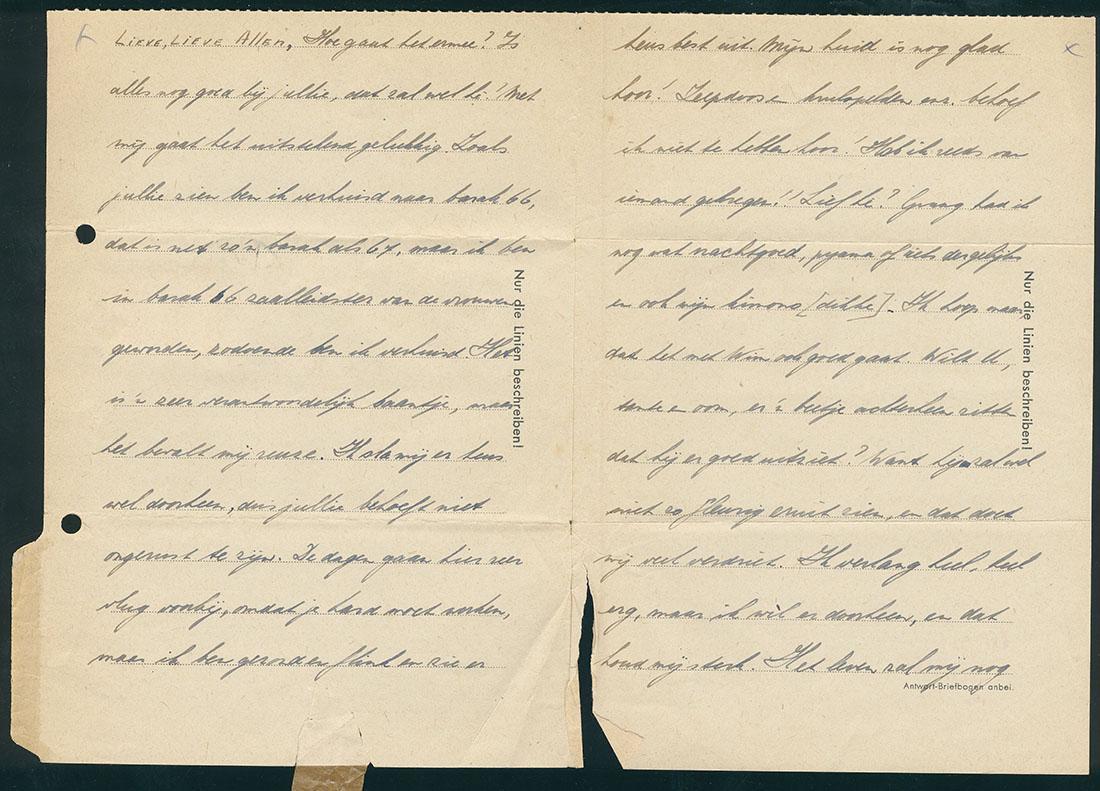 Lieve, Lieve Allen, Hoe gaat het ermee? Is
alles nog goed bij jullie, dat zal wel hè! Met
mij gaat het uitstekend gelukkig. Zoals
jullie zien ben ik verhuisd naar barak 66,
dat is net zo'n barak als 67, maar ik ben
in barak 66 zaalleidster van de vrouwen
geworden, zodoende ben ik verhuisd. Het
is 'n zeer verantwoordelijk baantje, maar
het bevalt mij reuze. Ik sla mij er heus
wel doorheen, dus jullie behoeft niet
ongerust te zijn. De dagen gaan hier zeer
vlug voorbij, omdat je hard moet werken,
maar ik ben gezond en flink en zie er
Nur die Linien beschreiben!
heus best uit. Mijn huid is nog glad
hoor! Zeepdoos en krulspelden enz. behoef
ik niet te hebben hoor. Heb ik reeds van
iemand gekregen!! Lief hè? Graag had ik
nog wat nachtgoed, pyama of iets dergelijks
en ook mijn kimono [dikke]. Ik hoop maar
dat het met Wim ook goed gaat. Wilt U,
tante en oom, er 'n beetje achterheen zitten
dat hij er goed uitziet? Want hij zal wel
niet zo fleurig eruit zien, en dat doet
mij veel verdriet. Ik verlang heel, heel
erg, maar ik wil er doorheen, en dat
houd mij sterk. Het leven zal mij nog
Nur die Linien beschreiben!
Antwort-Briefbogen anbei.